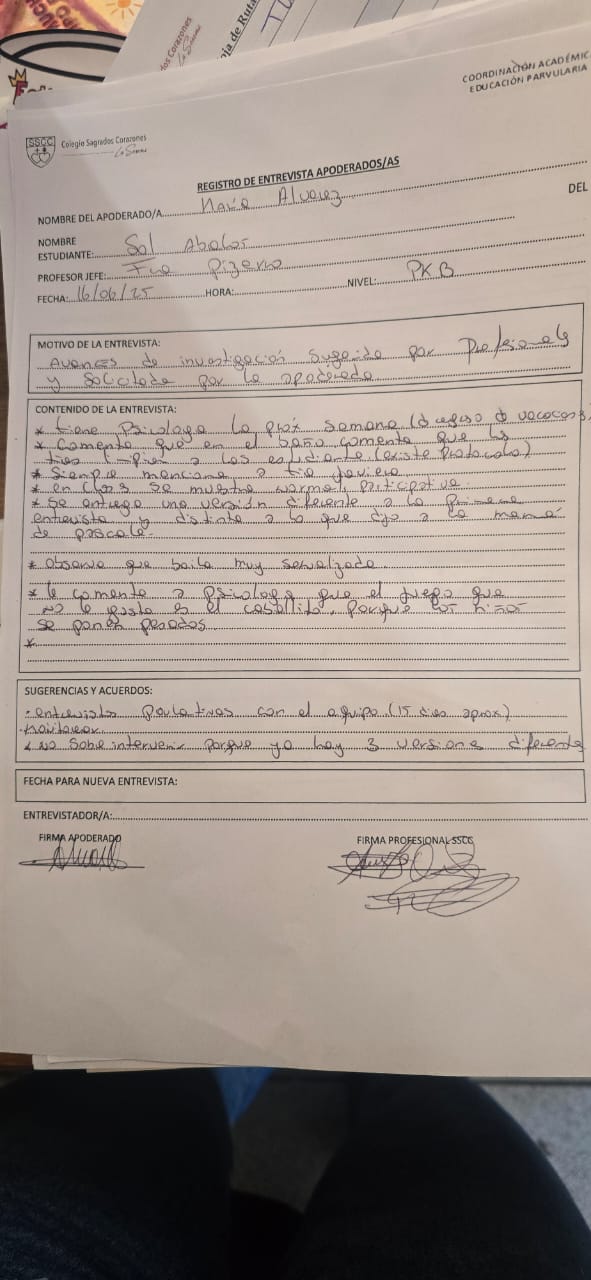 os Corazones
La Serena
ja de Ruta
COORDINACIÓN ACADÉMIC
EDUCACIÓN PARVULARIA
SSCC Colegio Sagrados Corazones
La Serena
REGISTRO DE ENTREVISTA APODERADOS/AS
NOMBRE DEL APODERADO/A María Alvarez
DEL
NOMBRE
ESTUDIANTE: Sol Abalos
PROFESOR JEFE: Fca Pizarro
FECHA: 16/06/25 HORA: NIVEL: PKB
MOTIVO DE LA ENTREVISTA:
Avances de investigación sugerida por Profesionales
y solicitada por la apoderada
CONTENIDO DE LA ENTREVISTA:
* tiene Psicologa la próx semana (d regreso d vacaciones)
* Comenta que em el baño comenta que las
tias limpian a los estudiante (existe Protocolo)
* Siempre menciona a tia Javiera
* en clases se muestra normal, participativa
* Se entrega una versión diferente a la primera
entrevista y distinta a lo que dijo a la mamá
de pascale.
* observa que baila muy sexualizado.
* le comenta a psicologa que el juego que
no le gusta es el caballito, porque los niños
se ponen pesados
*
SUGERENCIAS Y ACUERDOS:
- entrevista con el equipo (15 dias aprox)
- Monitorear
* no sobreintervenir porque ya hay 3 versiones diferentes
FECHA PARA NUEVA ENTREVISTA:
ENTREVISTADOR/A:
FIRMA APODERADO
FIRMA PROFESIONAL SSCC